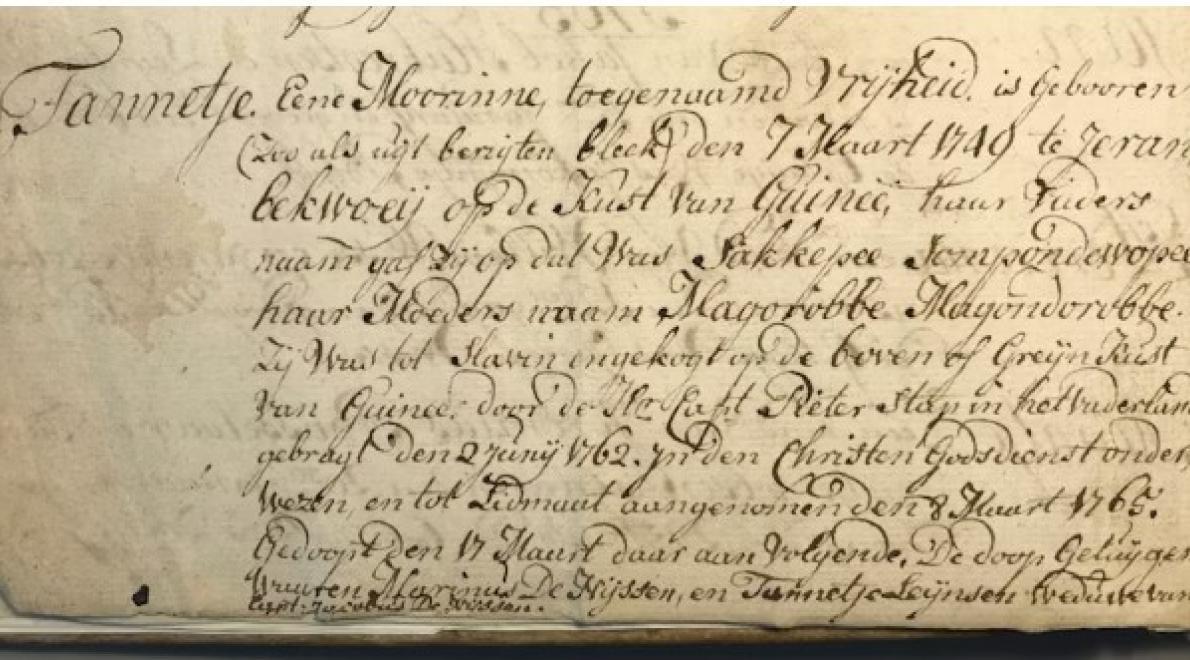 Tannetje. Eene Moorinne, toegenaamd Vrijheid. is Gebooren
(Zoo als uijt berigten bleek) den 7 Maart 1749 te Jeran
bekwoeij op de Kust van Guinee, haar Vaders
naam gaf Zij op dat Was Sakkepee Sompondewopee
haar Moeders naam Magorobbe Magondorobbe.
Zij Was tot Slavin ingekogt op de boven of Greijn Kust
van Guinee, door de Hr Capt Pieter Stap in het vaderlan
gebragt den 2 Junij 1762. In den Christen Godsdienst onder
wezen, en tot Lidmaat aangenomen den 8 Maart 1765.
Gedoopt den 17 Maart daar aan Volgende. De doop Getuygen
Waaren Marinus De Wijssen, en Tannetje Leijnsen Weduwe van
Capt. Jacobus De Wijssen.